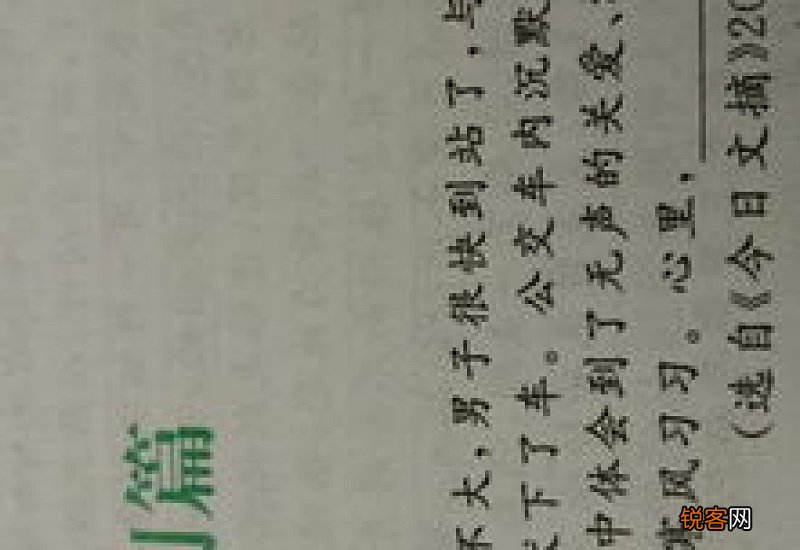 篇
不大，男子很快到站了，与
下了车。公交车内沉默
中体会到了无声的关爱、
风习习。心里，
（选自《今日文摘》20
锐客网